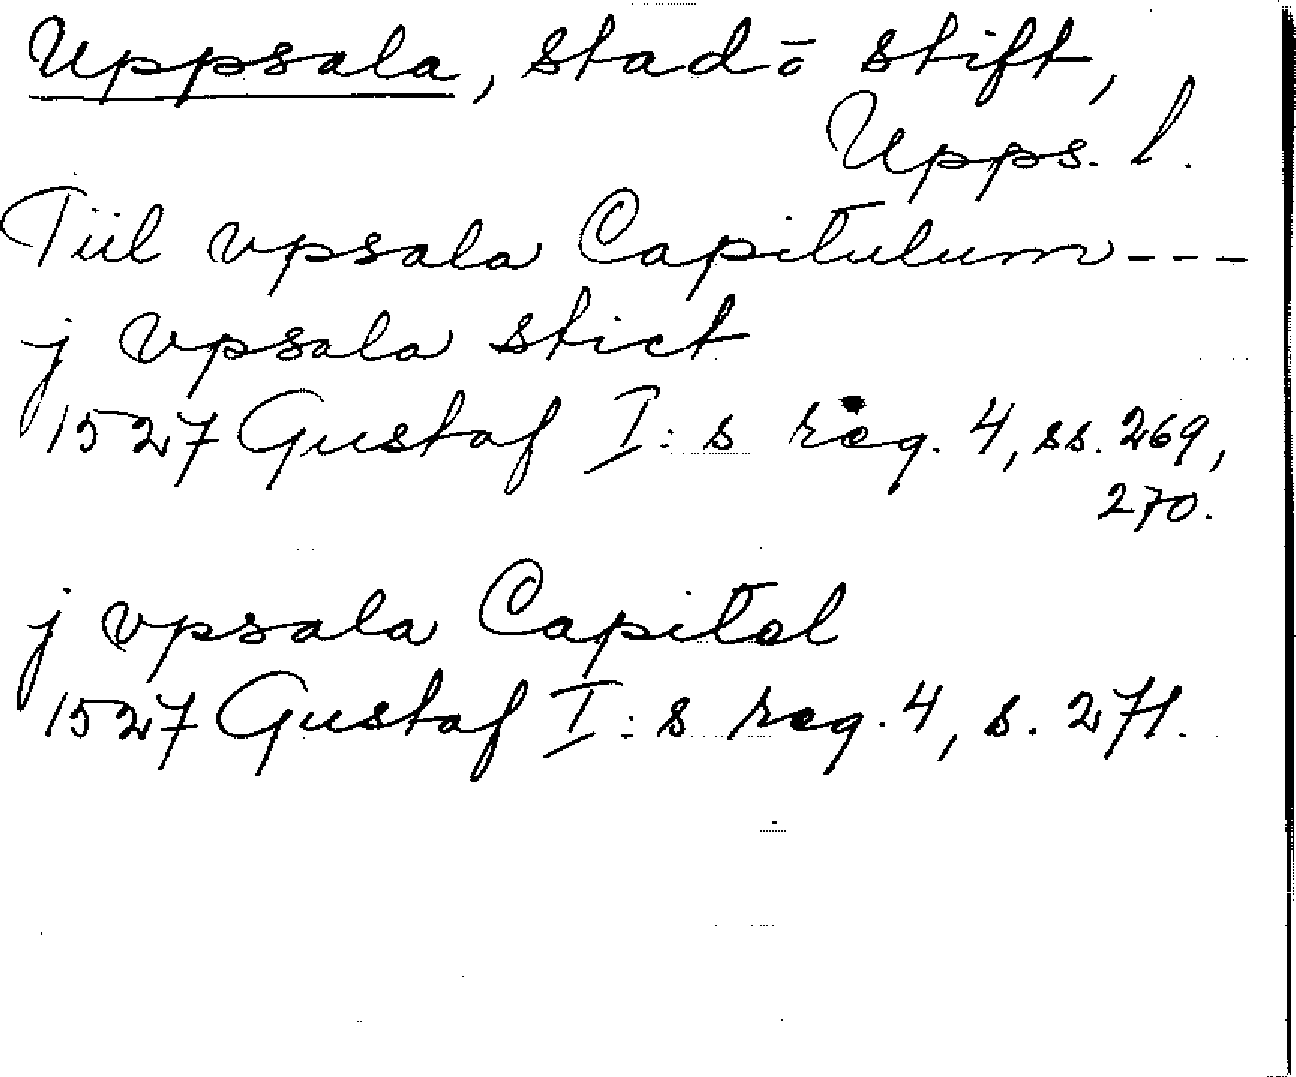 Uppsala, stad o stift,
Upps. l.
Tiil vpsala Capitulum---
j vpsala stict
1527 Gustaf I:s reg. 4, ss. 269,
270.
j vpsala Capitel
1527 Gustaf I:s reg. 4, s. 271.